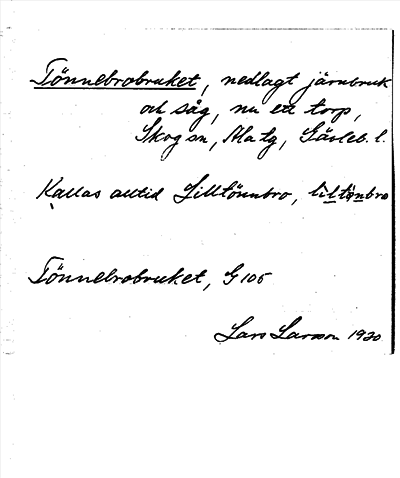 Tönnebrobruket, nedlagt järnbruk
och såg, nu ett torp,
Skog sn, Ala tg, Gävleb. l.
Kallas alltid Lilltönnbro, liltönbro
Tönnebrobruket, G 105
Lars Larsson 1930